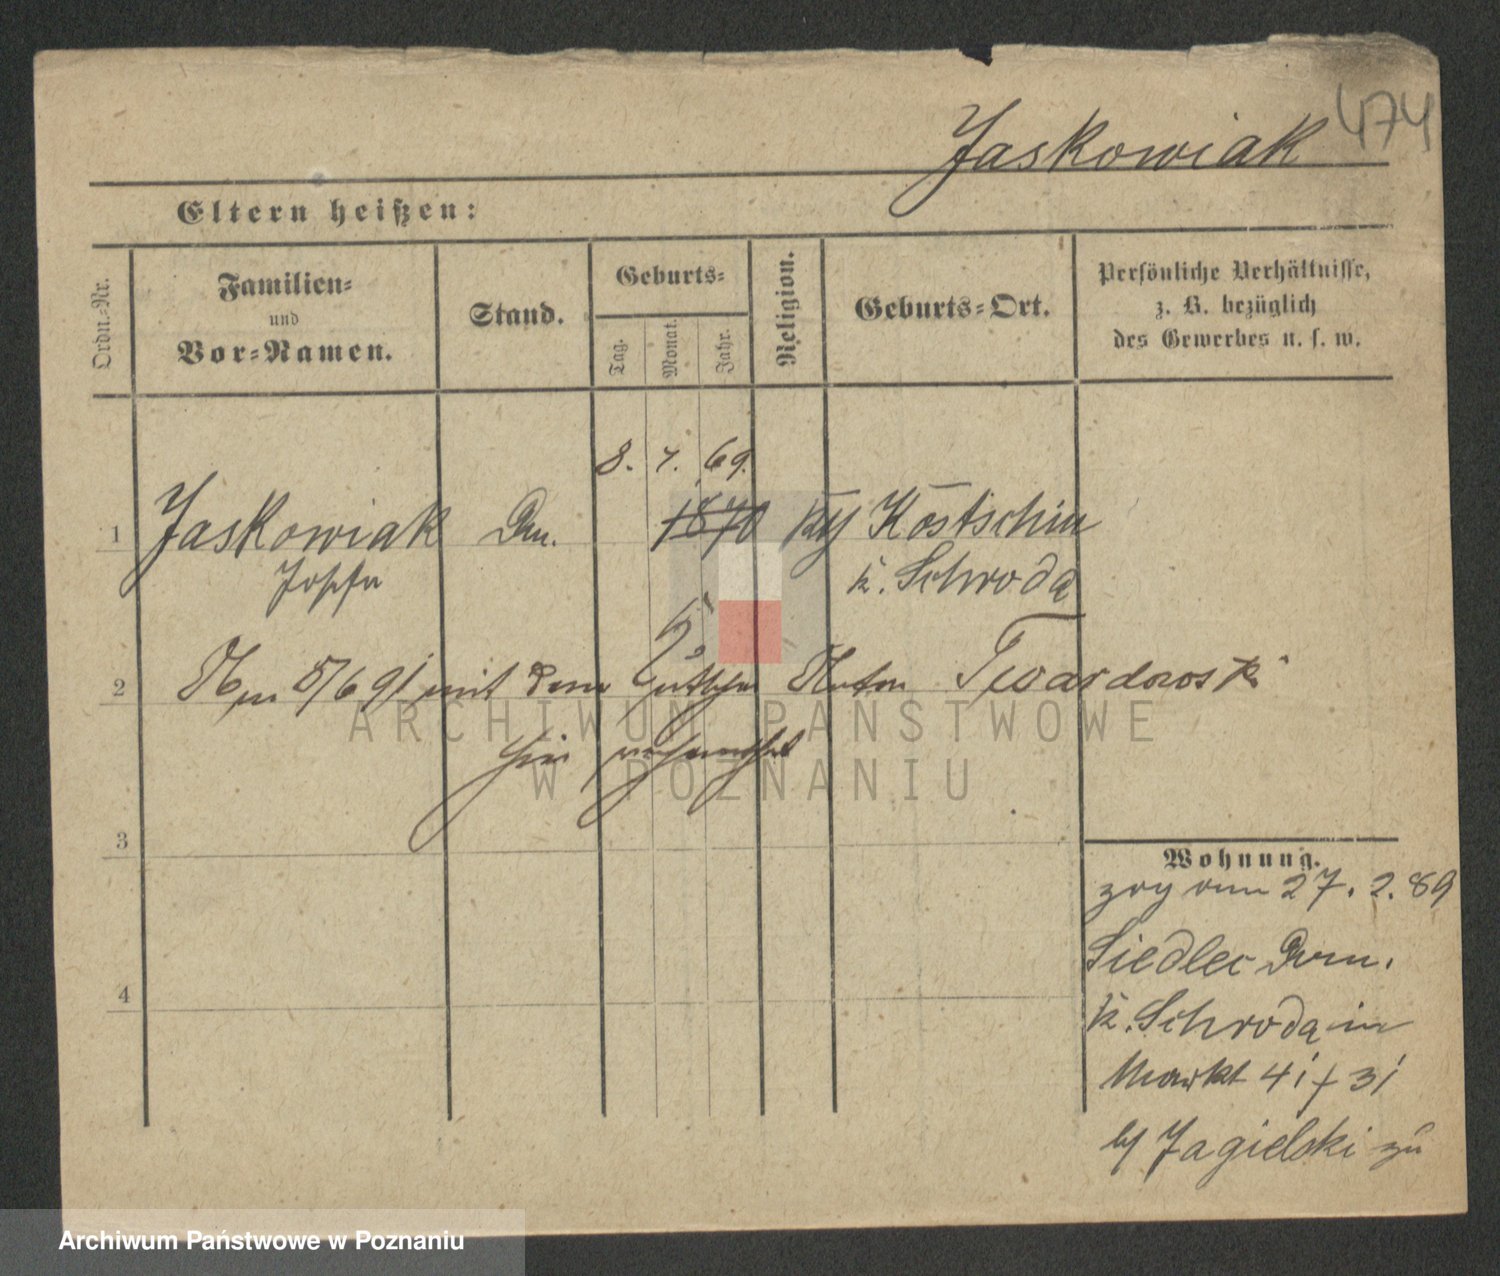 474
Jaskowiak
Eltern heißen:
Ordn.-Nr.
Familien-
und
Vor-Namen.
Stand.
Geburts-
Tag.
Monat.
Jahr.
Religion.
Geburts-Ort.
Persönliche Verhältnisse,
z. B. bezüglich
des Gewerbes u. s. w.
8. 7. 69.
1 Jaskowiak 1870 Kostschin
Josefa K. Schroda
2 Am 5/6 91 mit dem Anton Twardowski
hier verheirathet
3
4
Wohnung.
zog vom 27. 2. 89
Siedlec Dom.
K. Schroda in
Markt 4
b/ Jagielski zu
ARCHIWUM PAŃSTWOWE
W POZNANIU
Archiwum Państwowe w Poznaniu